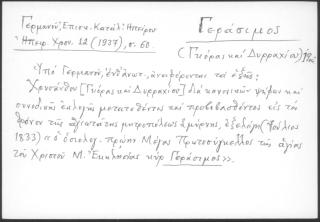 Γερμανοῦ, Ἐπισκ. Κατάλ. Ἠπείρου
Ἠπειρ. Χρον. 12 (1937), σ. 60.
Γεράσιμος
(Γκιόρας καὶ Δυρραχίου)
Ὑπὸ Γερμανοῦ ἀναφέρονται τὰ ἑξῆς:
Χρυσάνθου [Γκιόρας καὶ Δυρραχίου] διὰ κανονικῶν ψήφων καὶ
συνοδικῆς ἐκλογῆς μετατεθέντος καὶ προβιβασθέντος εἰς τὸν
θρόνον τῆς ἁγιωτάτης μητροπόλεως Σμύρνης, ἐξελέγη (Ἰούλιος
1833) ὁ ὁσιολογ. πρώην Μέγας Πρωτοσύγκελλος τῆς ἁγίας
τοῦ Χριστοῦ Μ. Ἐκκλησίας κὺρ Γεράσιμος».